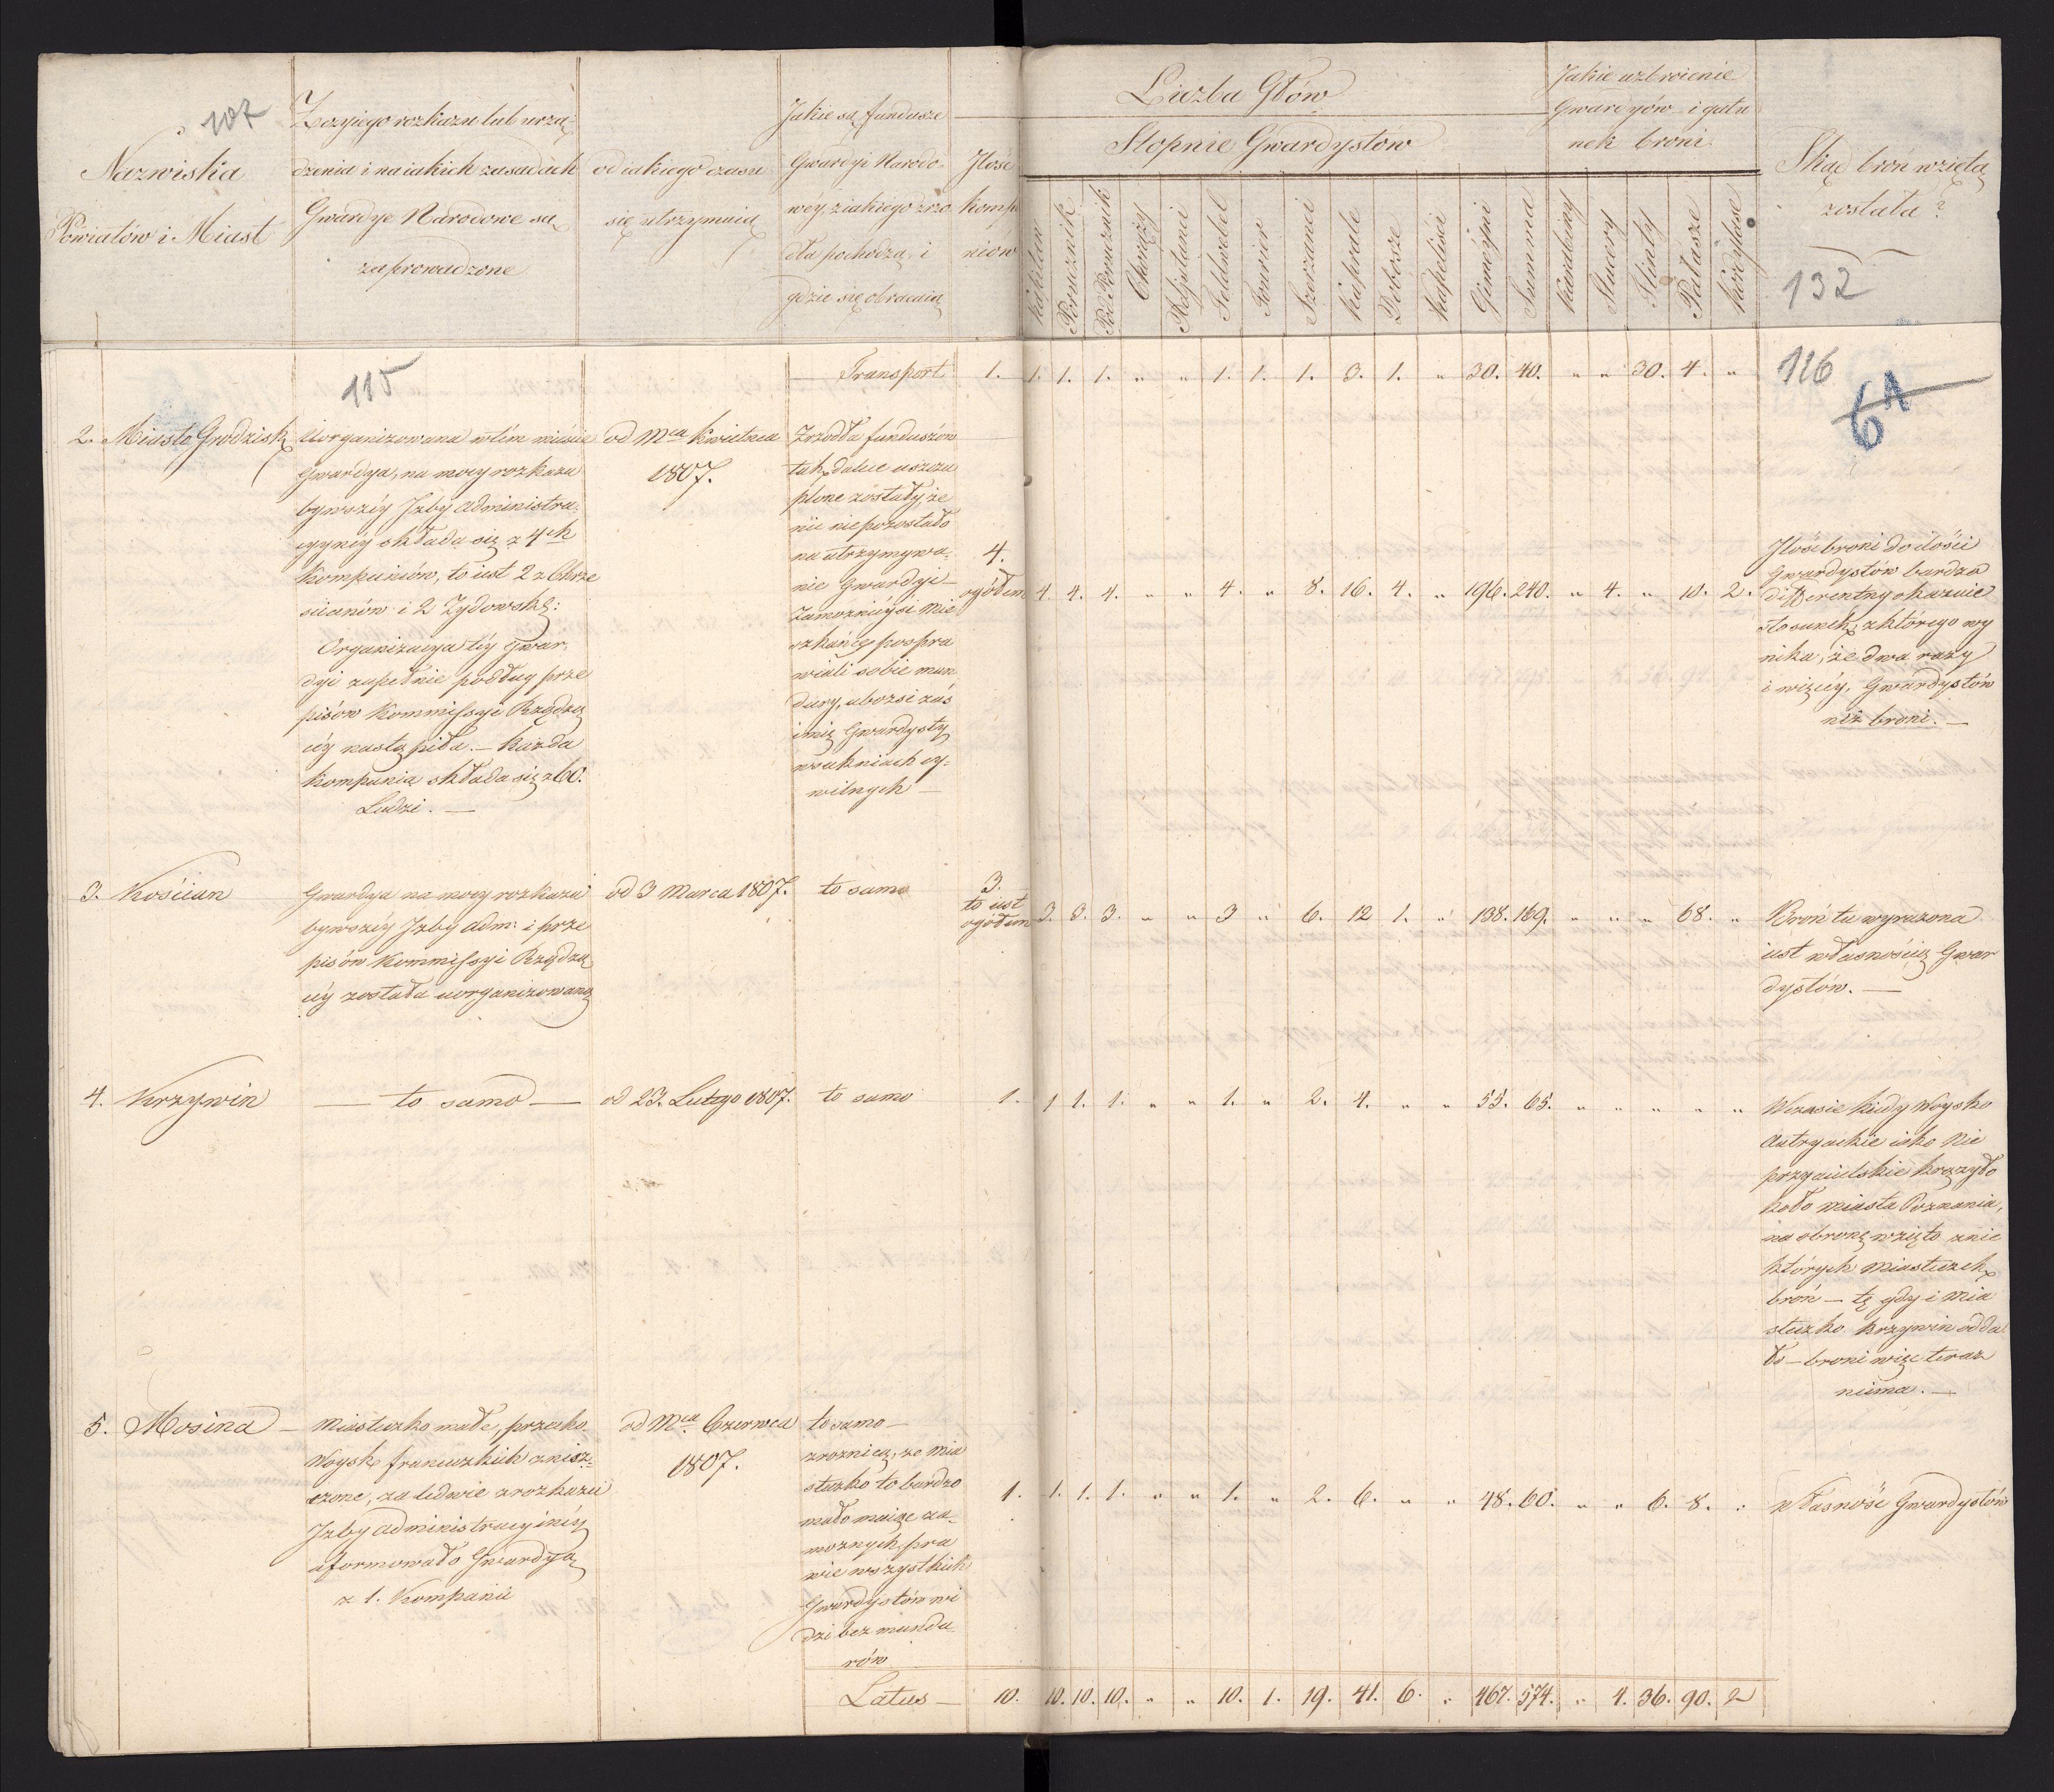 107
Nazwiska
Powiatów i Miast
Z czyiego rozkazu lub urzą-
dzenia i na iakich zasadach
Gwardye Narodowe są
zaprowadzone
od iakiego czasu
się utrzymuią
Jakie są fundusze
Gwardyi Narodo-
wey, z iakiego zrzo
dła pochodzą, i
gdzie się obracaią
Ilość
kompa
niów
Liczba Głów
Stopnie Gwardystow
Kapitan
Porucznik
Pod Porucznik
Chorąży
Adjutanci
Feldwebel
Fourier
Szerzanci
Kaprale
Dobosze
Kapeliści
Gimeyni
Summa
Jakie uzbroienie
Gwardyów i gatu
nek broni
Karabiny
Stucery
Flinty
Pałasze
Kordylose
Skąd broń wzięta
została?
132
115
Transport 1. 1. 1. 1. " " 1. 1. 1. 3. 1. " 30. 40. " " 30. 4. "
116
6A
2. Miasto Grodzisk
Uorganizowana w tém mieście
Gwardya, na mocy rozkazu
bywszéy Izby Administra-
cyynéy składa się z 4ch
Kompaniów, to iest 2 z Chrze
ściianów i 2 Zydowsk:
Organizacya téy Gwar-
dyi zupełnie podług prze
pisów Kommissyi Rządzą
céy nastąpiła. — Każda
Kompania składa się z 60.
Ludzi. —
od Mca Kwietnia
1807.
Zrzodła funduszów
tak dalece uszczu
plone zostały, że
nic nie pozostało
na utrzymywa-
nie Gwardyi —
Zamoznieysi Mie
szkańcy pospra
wiali sobie mun
dury, ubozsi zaś
inni Gwardysty
w sukniach cy-
wilnych —
4.
ogółem 4. 4. 4. " " 4. " 8. 16. 4. " 196. 240. " 4. " 10. 2.
Ilość broni do ilości
Gwardystów bardzo
differentny okazuie
stosunek, z którego wy
nika, że dwa razy
i więcéy, Gwardystów
niż broni. —
3. Kościan
Gwardya na mocy rozkazu
bywszéy Izby Adm: i prze
pisów Kommissyi Rządzą
céy została uorganizowaną
od 3 Marca 1807.
to samo
3.
to iest
ogółem 3. 3. 3. " " 3 " 6. 12 1. " 138. 169. " " " 68. "
Broń tu wyrazona
iest własnością Gwar
dystów. —
4. Krzywin
— to samo —
od 23. Lutego 1807.
to samo
1. 1 1. 1. " " 1. " 2. 4. " " 55. 65. " " " " "
W czasie kiedy Woysko
Autryackie iako Nie
przyiacielskie krązyło
koło miasta Poznania,
na obronę wzięto z nie
których Miasteczek
broń — tę gdy i Mia
steczko Krzywin odda
ło — broni więc teraz
niema. —
5. Mosina —
Miasteczko małe, przez ko
Woysk francuzkich znisz-
czone, zaledwie z rozkazu
Izby Administracyinéy
uformowało Gwardyą
z 1. Kompanii
od Mca Czerwca
1807.
to samo —
z roznicą, że Mia
steczko to bardzo
mało maiąc za-
moznych, pra
wie wszystkich
Gwardystów wi
dzi bez mundu
rów
1. 1. 1. 1. " " 1. " 2. 6. " " 48. 60. " " 6. 8. "
Własność Gwardystów
Latus — 10. 10. 10. 10. " " 10. 1. 19. 41. 6. " 467. 574. " 4. 36. 90. 2